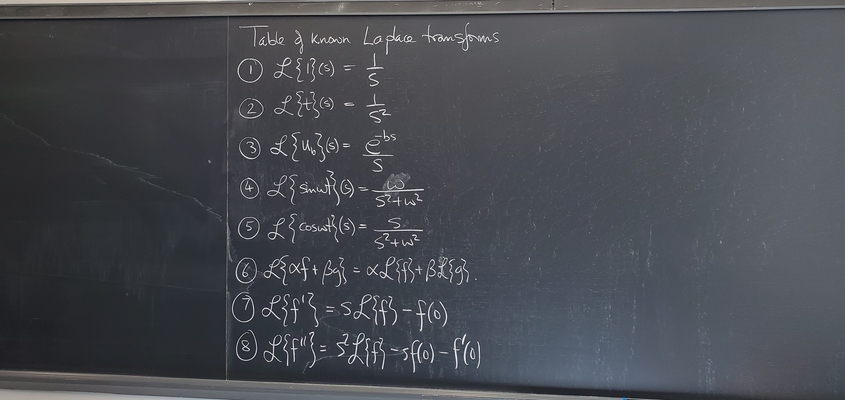 Table of known Laplace transforms
① ℒ{1}(s) = 1/s
② ℒ{t}(s) = 1/s²
③ ℒ{u_b}(s) = e^{-bs}/s
④ ℒ{sinωt}(s) = ω/(s²+ω²)
⑤ ℒ{cosωt}(s) = s/(s²+ω²)
⑥ ℒ{αf + βg} = αℒ{f} + βℒ{g}.
⑦ ℒ{f'} = sℒ{f} - f(0)
⑧ ℒ{f''} = s²ℒ{f} - sf(0) - f'(0)